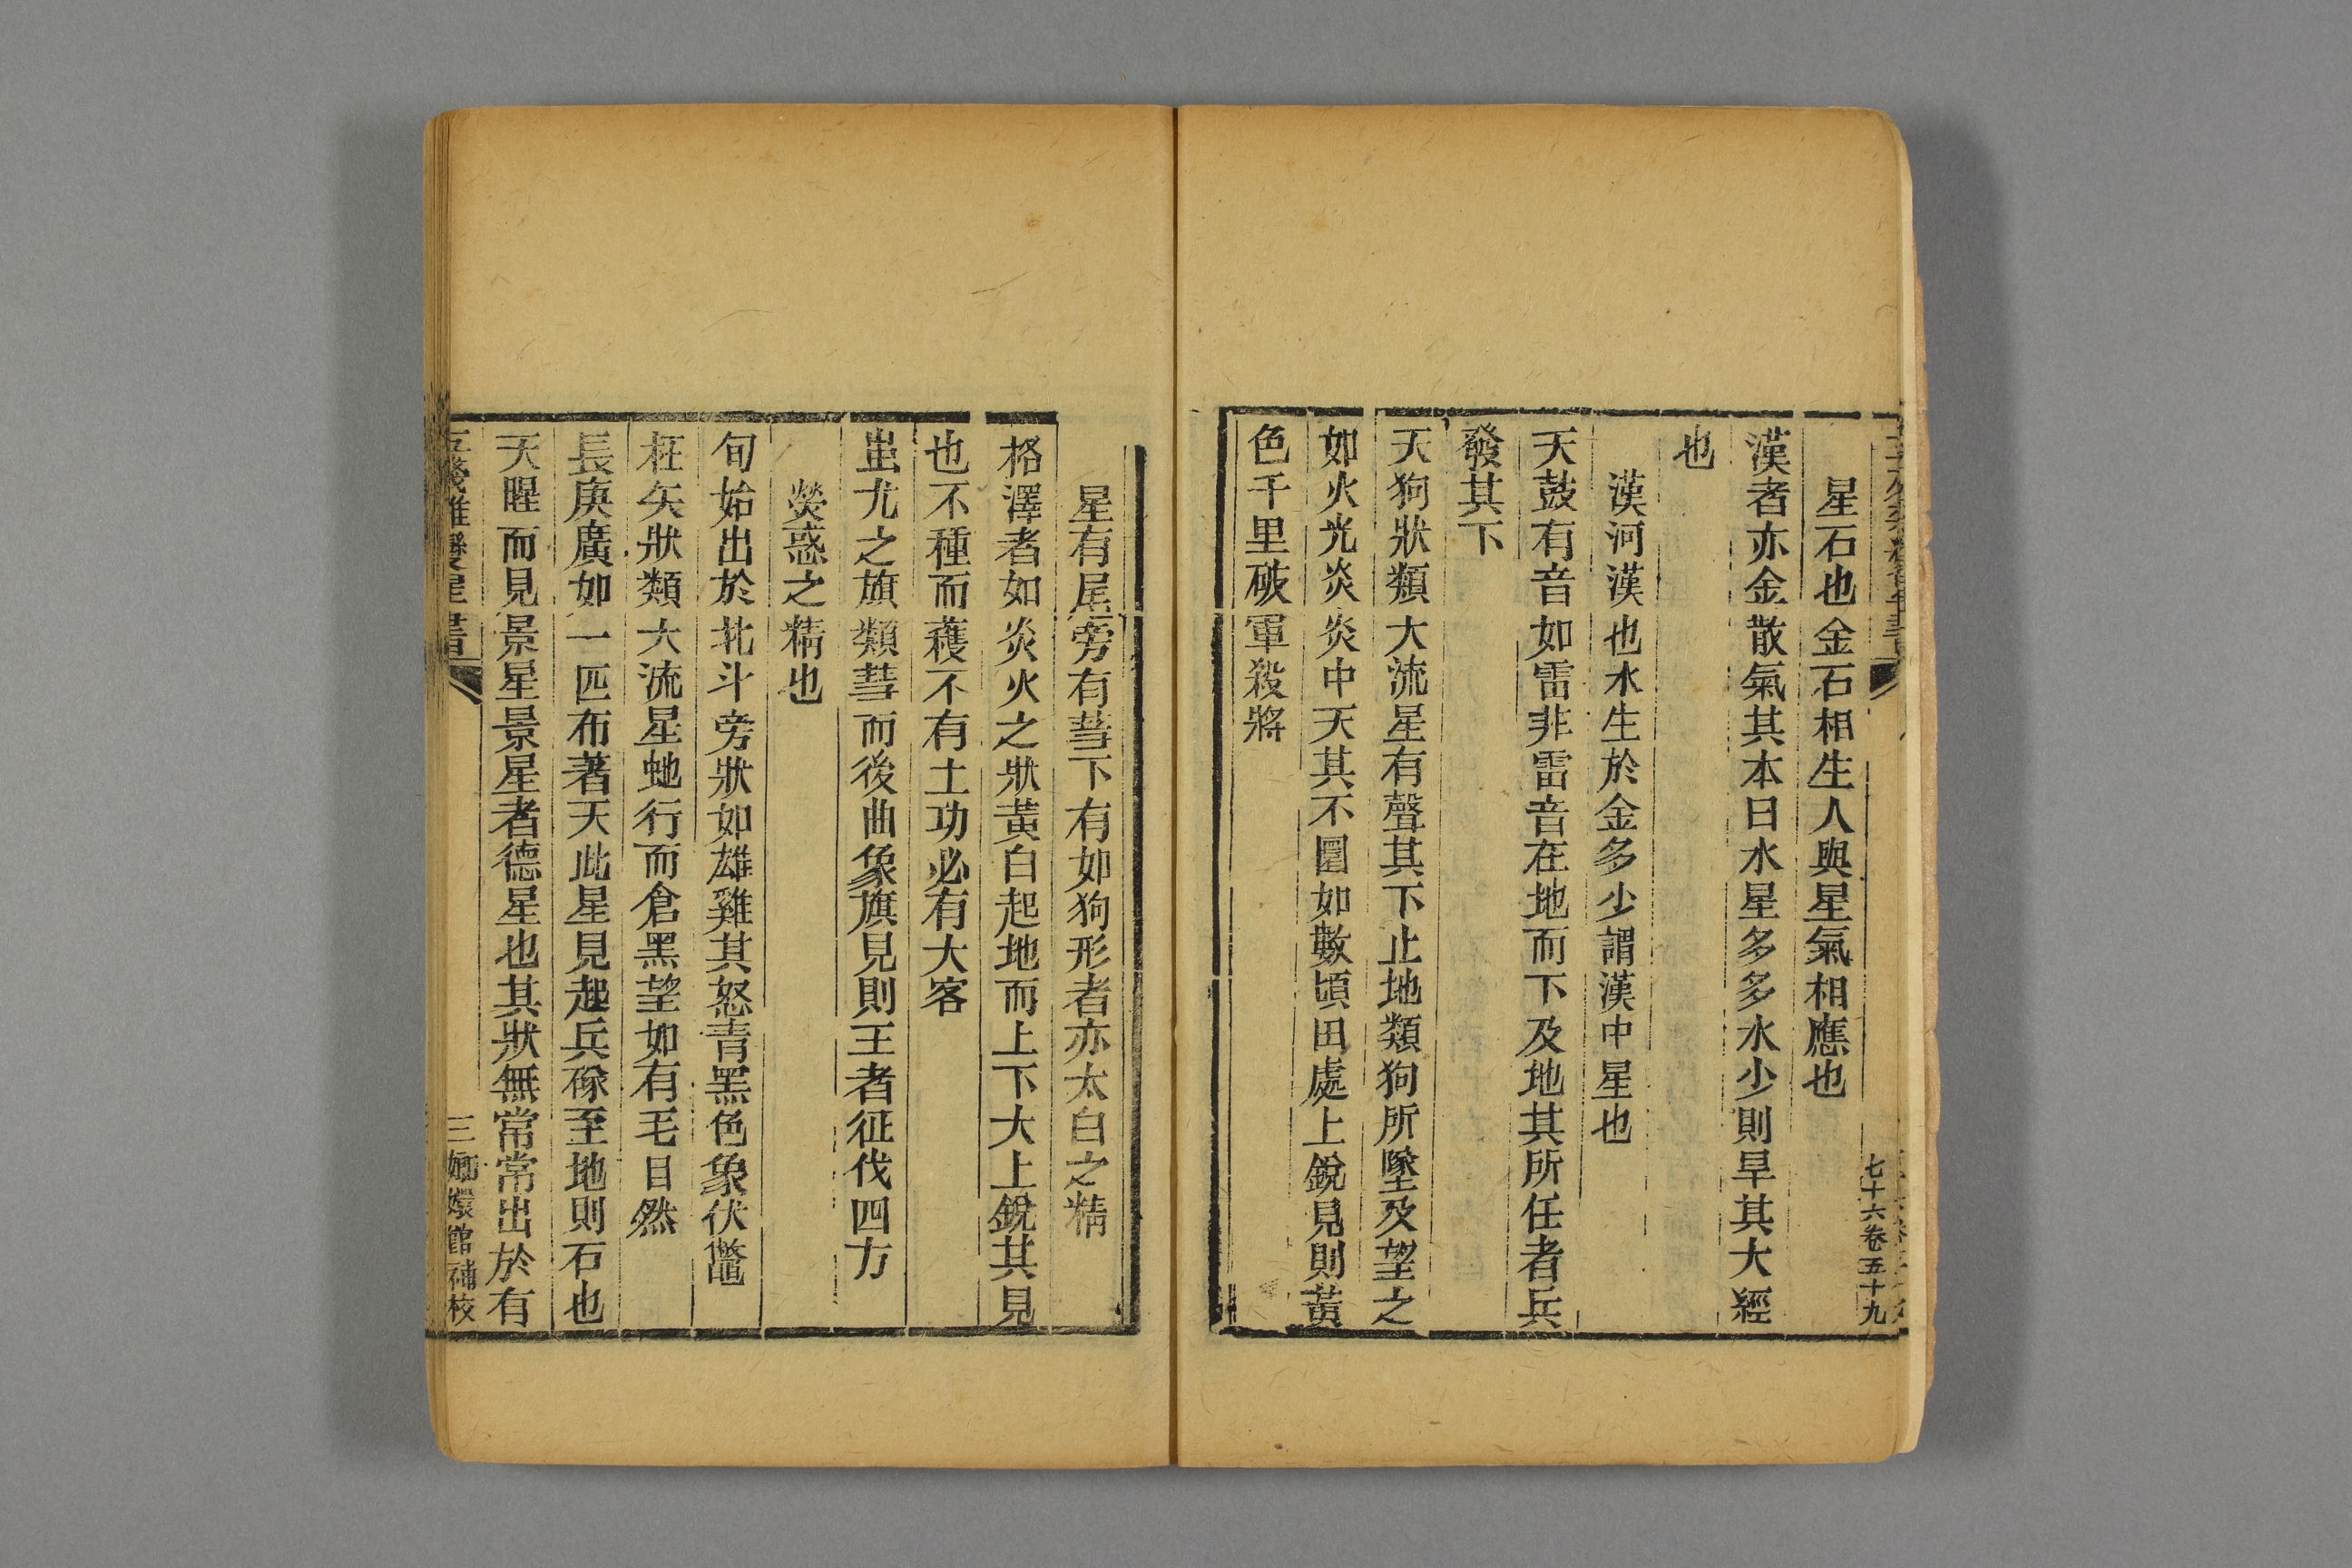 七十六卷五十九
星石也金石相生人與星氣相應也
漢者亦金散氣其本曰水星多多水少則旱其大經
也
漢河漢也水生於金多少謂漢中星也
天鼓有音如雷非雷音在地而下及地其所任者兵
發其下
天狗狀類大流星有聲其下止地類狗所墜及望之
如火光炎炎中天其下圜如數頃田處上銳見則黃
色千里破軍殺將
星有尾旁有彗下有如狗形者亦太白之精
格澤者如炎火之狀黃白起地而上下大上銳其見
也不種而穫不有土功必有大客
蚩尤之旗類彗而後曲象旗見則王者征伐四方
熒惑之精也
旬始出於北斗旁狀如雄雞其怒青黑色象伏鼈
枉矢狀類大流星虵行而倉黑望如有毛目然
長庚廣如一匹布著天此星見起兵𥓓至地則石也
天暒而見景星景星者德星也其狀無常常出於有
三 嫏嬛館補校